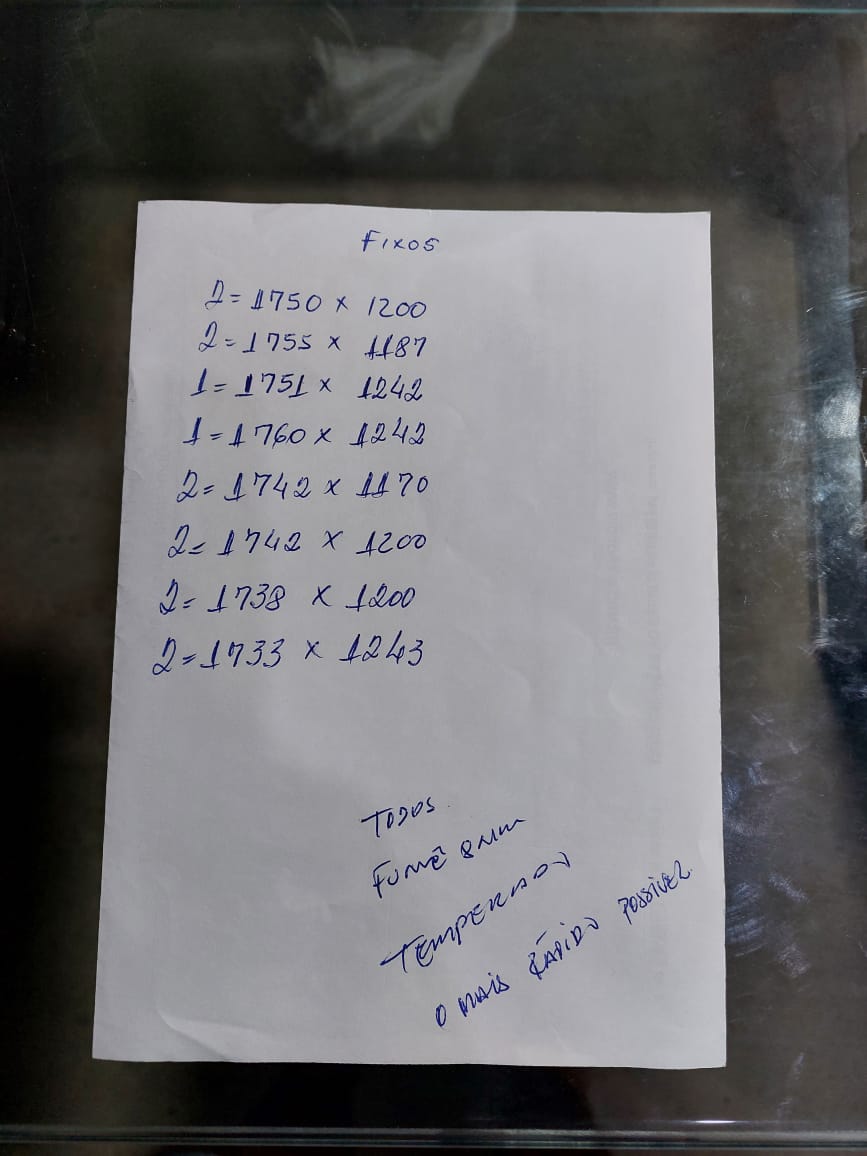 FIXOS
2=1750 x 1200
2=1755 x 1187
1=1751 x 1242
1=1760 x 1242
2=1742 x 1170
2=1742 x 1200
2=1738 x 1200
2=1733 x 1243
TODOS
FUMÊ 8MM
TEMPERADO
O MAIS RÁPIDO POSSÍVEL